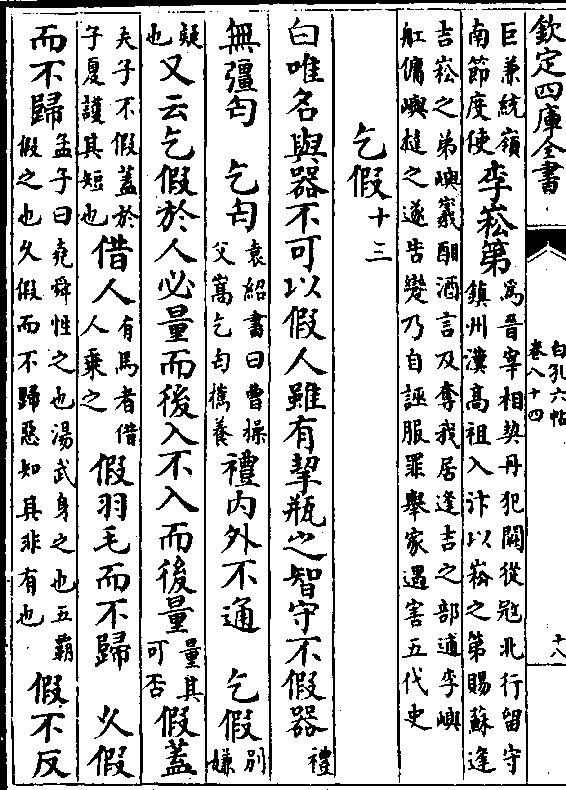 欽定四庫全書
白孔六帖
卷八十四
十八
巨兼統嶺
南節度使
李崧第
為晉宰相契丹犯闕從冦北行留守
鎮州漢高祖入汴以崧之第賜蘇逢
吉崧之弟嶼㠖酣酒言及奪我居逢吉之部逋李嶼
舡傭嶼撻之遂告變乃自誣服罪舉家遇害五代史
乞假十三
曰唯名與器不可以假人雖有挈瓶之智守不假器禮
無彊匄
乞匄
袁紹書曰曹操
父嵩乞匄攜養
禮内外不通
乞假
别
嫌
疑
也
又云乞假於人必量而後入不入而後量
量其
可否
假蓋
夫子不假蓋於
子夏護其短也
借人
有馬者借
人乘之
假羽毛而不歸
久假
而不歸
孟子曰堯舜性之也湯武身之也五霸
假之也久假而不歸惡知其非有也
假不反